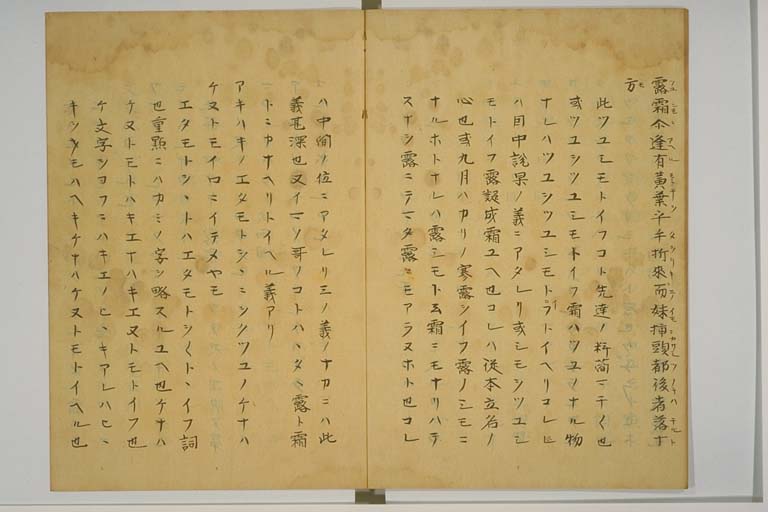 露霜尓逢有黄葉乎手折來而妹挿頭都後者落十
方
此ツユシモトイフコト先達ノ料簡マチ〱也
或ツユシツユシモトイフ霜ハツユノナル物
ナレハツユシツユシモトイヘリコレ
ハ因中説果ノ義ニアタレリ或シモシツユシ
モトイフ露凝成霜ユヘ也コレハ従本立名ノ
心也或九月ハカリノ寒露シイフ露ノシモニ
ナルホトナレハ露シモト云霜ニモナリハテ
スナシ露ニテマタ露ニモアラヌホト也コレ
ハ中間ノ位ニアタレリ三ノ義ノナカニハ此
義甚深也又イマノ哥ノコトハ、タ、露ト霜
トニカナヘリトイヘル義アリ
アキハキノエタモトシヽニシクツユノケナハ
ケヌトモイロニイテメヤモ
エタモトシヽトハエタモトシ〱トヽイフ詞
也重點ニハカミノ字シ略スルユヘ也ケナハ
ケヌトモトハキエナハキエヌトモトイフ也
ケ文字シヨフニハキエノヒヽキアレハヒヽ
キシタモハヘキケナハケヌトモトイヘル也